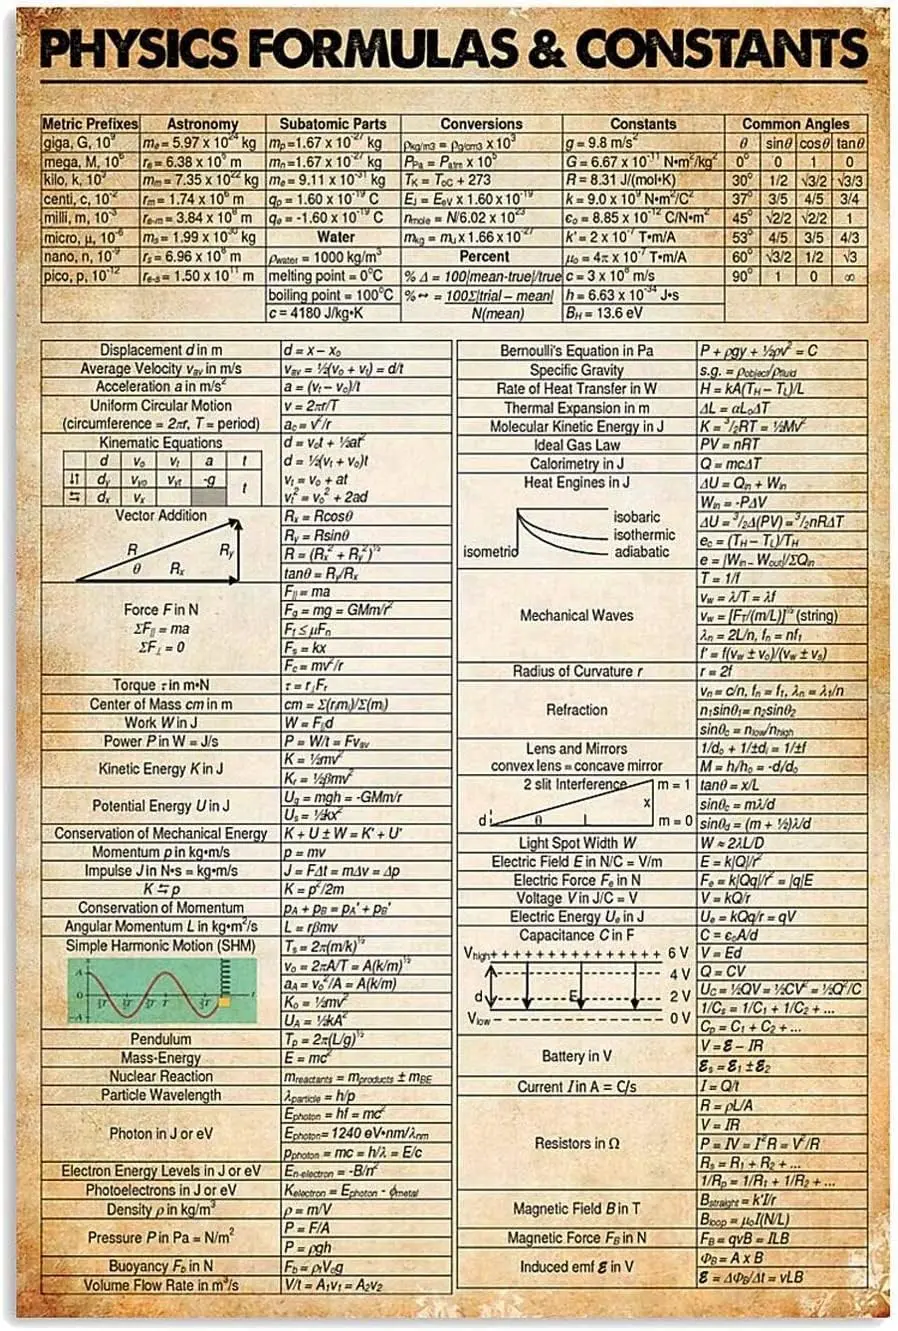 PHYSICS FORMULAS & CONSTANTS
Metric Prefixes
giga, G, 10⁹
mega, M, 10⁶
kilo, k, 10³
centi, c, 10⁻²
milli, m, 10⁻³
micro, μ, 10⁻⁶
nano, n, 10⁻⁹
pico, p, 10⁻¹²
Astronomy
mₑ = 5.97 x 10²⁴ kg
rₑ = 6.38 x 10⁶ m
mₘ = 7.35 x 10²² kg
rₘ = 1.74 x 10⁶ m
rₑ₋ₘ = 3.84 x 10⁸ m
mₛ = 1.99 x 10³⁰ kg
rₛ = 6.96 x 10⁸ m
rₑ₋ₛ = 1.50 x 10¹¹ m
Subatomic Parts
mₚ=1.67 x 10⁻²⁷ kg
mₙ=1.67 x 10⁻²⁷ kg
mₑ = 9.11 x 10⁻³¹ kg
qₚ = 1.60 x 10⁻¹⁹ C
qₑ = -1.60 x 10⁻¹⁹ C
Water
ρwater = 1000 kg/m³
melting point = 0°C
boiling point = 100°C
c = 4180 J/kg•K
Conversions
ρkg/m3 = ρg/cm3 x 10³
PPa = Patm x 10⁵
TK = ToC + 273
EJ = EeV x 1.60 x 10⁻¹⁹
nmole = N/6.02 x 10²³
mkg = mu x 1.66 x 10⁻²⁷
Percent
% Δ = 100|mean-true|/true
% ↔ = 100Σ|trial – mean|
N(mean)
Constants
g = 9.8 m/s²
G = 6.67 x 10⁻¹¹ N•m²/kg²
R = 8.31 J/(mol•K)
k = 9.0 x 10⁹ N•m²/C²
ε₀ = 8.85 x 10⁻¹² C/N•m²
k' = 2 x 10⁻⁷ T•m/A
μ₀ = 4π x 10⁻⁷ T•m/A
c = 3 x 10⁸ m/s
h = 6.63 x 10⁻³⁴ J•s
BH = 13.6 eV
Common Angles
θ sinθ cosθ tanθ
0° 0 1 0
30° 1/2 √3/2 √3/3
37° 3/5 4/5 3/4
45° √2/2 √2/2 1
53° 4/5 3/5 4/3
60° √3/2 1/2 √3
90° 1 0 ∞
Displacement d in m
d = x – x₀
Average Velocity vav in m/s
vav = ½(v₀ + vt) = d/t
Acceleration a in m/s²
a = (vt – v₀)/t
Uniform Circular Motion
(circumference = 2πr, T = period)
v = 2πr/T
ac = v²/r
Kinematic Equations
d v₀ vt a t
⇅ dy vyo vyt -g t
⇆ dx vx
d = v₀t + ½at²
d = ½(vt + v₀)t
vt = v₀ + at
vt² = v₀² + 2ad
Vector Addition
R Ry
θ Rx
Rx = Rcosθ
Ry = Rsinθ
R = (Rx² + Ry²)^½
tanθ = Ry/Rx
Force F in N
ΣF|| = ma
ΣF⊥ = 0
F|| = ma
Fg = mg = GMm/r²
Ff ≤ μFn
Fs = kx
Fc = mv²/r
Torque τ in m•N
τ = r⊥Fr
Center of Mass cm in m
cm = Σ(rᵢmᵢ)/Σ(mᵢ)
Work W in J
W = F||d
Power P in W = J/s
P = W/t = Fvav
Kinetic Energy K in J
K = ½mv²
Kr = ½βmv²
Potential Energy U in J
Ug = mgh = -GMm/r
Us = ½kx²
Conservation of Mechanical Energy
K + U ± W = K' + U'
Momentum p in kg•m/s
p = mv
Impulse J in N•s = kg•m/s
J = FΔt = mΔv = Δp
K ⇆ p
K = p²/2m
Conservation of Momentum
pA + pB = pA' + pB'
Angular Momentum L in kg•m²/s
L = rβmv
Simple Harmonic Motion (SHM)
A
0
-A
t
Ts = 2π(m/k)^½
v₀ = 2πA/T = A(k/m)^½
aA = v₀²/A = A(k/m)
K₀ = ½mv²
UA = ½kA²
Pendulum
Tp = 2π(L/g)^½
Mass-Energy
E = mc²
Nuclear Reaction
mreactants = mproducts ± mBE
Particle Wavelength
λparticle = h/p
Photon in J or eV
Ephoton = hf = mc²
Ephoton = 1240 eV•nm/λnm
pphoton = mc = h/λ = E/c
Electron Energy Levels in J or eV
En-electron = -B/n²
Photoelectrons in J or eV
Kelectron = Ephoton - ϕmetal
Density ρ in kg/m³
ρ = m/V
Pressure P in Pa = N/m²
P = F/A
P = ρgh
Buoyancy Fb in N
Fb = ρfVog
Volume Flow Rate in m³/s
V/t = A₁v₁ = A₂v₂
Bernoulli's Equation in Pa
P + ρgy + ½ρv² = C
Specific Gravity
s.g. = ρobject/ρfluid
Rate of Heat Transfer in W
H = kA(TH – TL)/L
Thermal Expansion in m
ΔL = αL₀ΔT
Molecular Kinetic Energy in J
K = ³/₂RT = ½Mv²
Ideal Gas Law
PV = nRT
Calorimetry in J
Q = mcΔT
Heat Engines in J
isobaric
isothermic
adiabatic
isometric
ΔU = Qin + Win
Win = -PΔV
ΔU = ³/₂Δ(PV) = ³/₂nRΔT
ec = (TH – TL)/TH
e = |Win – Wout|/ΣQin
Mechanical Waves
T = 1/f
vw = λ/T = λf
vw = [FT/(m/L)]^½ (string)
λn = 2L/n, fn = nf₁
f' = f(vw ± vo)/(vw ± vs)
Radius of Curvature r
r = 2f
Refraction
vn = c/n, fn = f₁, λn = λ₁/n
n₁sinθ₁ = n₂sinθ₂
sinθc = nlow/nhigh
Lens and Mirrors
convex lens = concave mirror
1/do + 1/±di = 1/±f
M = h/ho = -d/do
2 slit Interference
m = 1
x
d θ L m = 0
tanθ = x/L
sinθc = mλ/d
sinθd = (m + ½)λ/d
Light Spot Width W
W ≈ 2λL/D
Electric Field E in N/C = V/m
E = k|Q|/r²
Electric Force Fe in N
Fe = k|Qq|/r² = |q|E
Voltage V in J/C = V
V = kQ/r
Electric Energy Ue in J
Ue = kQq/r = qV
Capacitance C in F
Vhigh + + + + + + + + + + + + + + + 6 V
4 V
d E 2 V
Vlow 0 V
C = ε₀A/d
V = Ed
Q = CV
UC = ½QV = ½CV² = ½Q²/C
1/Cs = 1/C₁ + 1/C₂ + ...
Cp = C₁ + C₂ + ...
Battery in V
V = ℰ – IR
ℰs = ℰ₁ ± ℰ₂
Current I in A = C/s
I = Q/t
Resistors in Ω
R = ρL/A
V = IR
P = IV = I²R = V²/R
Rs = R₁ + R₂ + ...
1/Rp = 1/R₁ + 1/R₂ + ...
Magnetic Field B in T
Bstraight = k'I/r
Bloop = μ₀I(N/L)
Magnetic Force FB in N
FB = qvB = ILB
Induced emf ℰ in V
ΦB = A x B
ℰ = ΔΦB/Δt = vLB